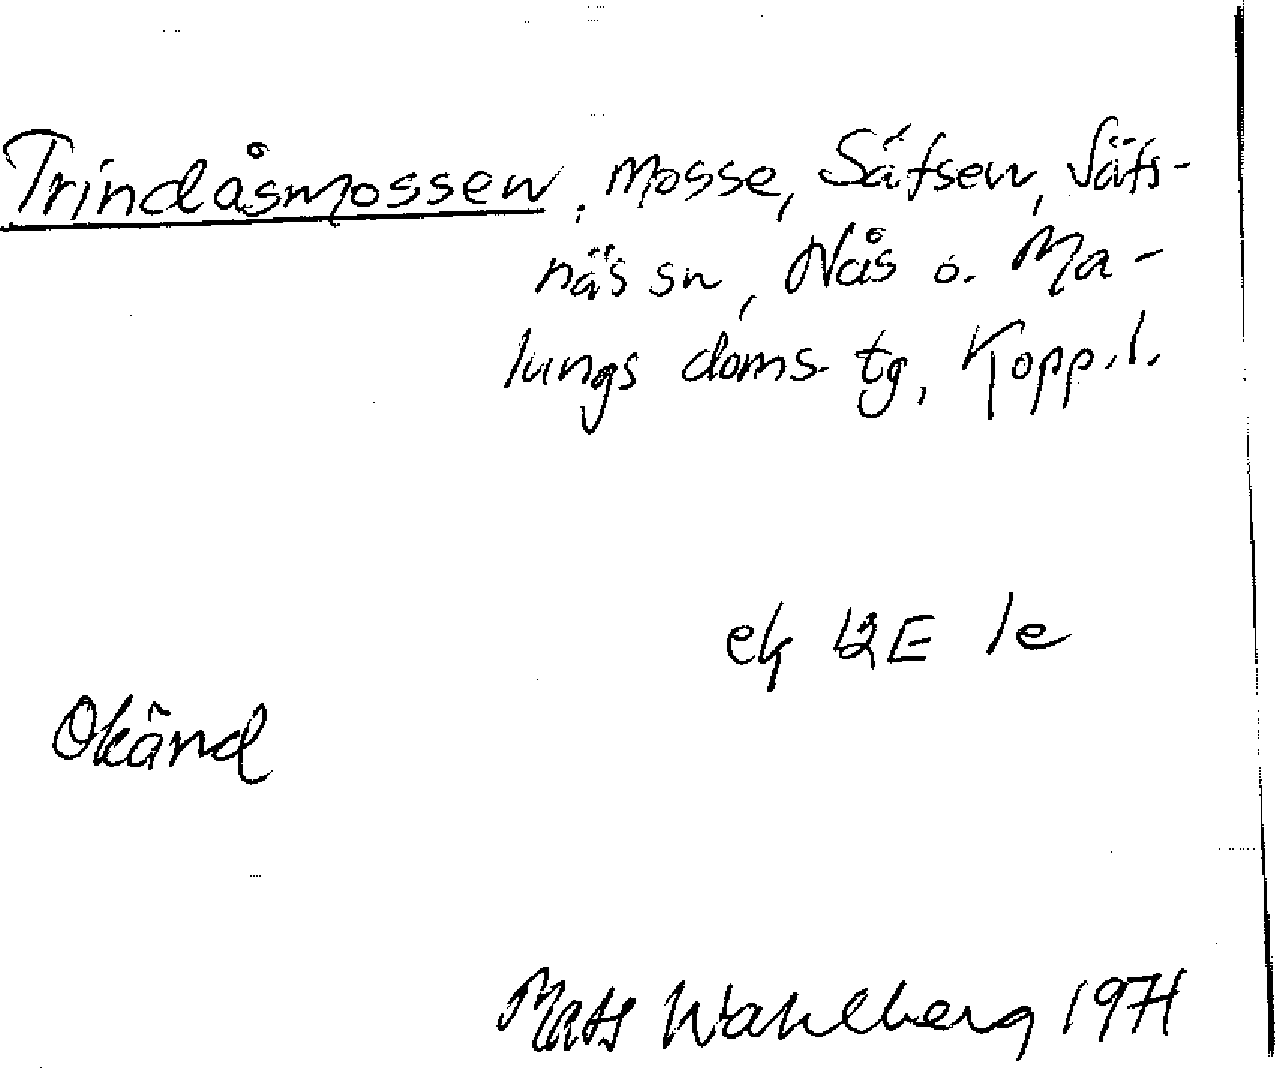 Trindåsmossen, mosse, Säfsen, Säfs-
näs sn, Nås o. Ma-
lungs doms tg, Kopp.l.
ek 12E 1e
Okänd
Mats Wahlberg 1971